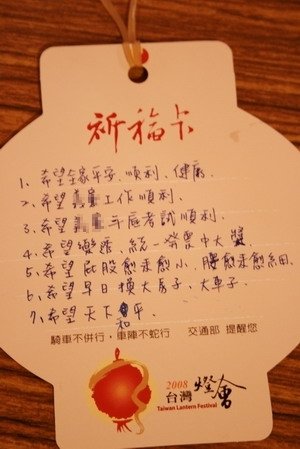 祈福卡
1、希望全家平安、順利、健康.
2、希望 工作順利.
3、希望 年底考試順利.
4、希望樂透、統一發票中大獎
5、希望屁股愈來愈小、腰愈來愈細.
6、希望早日換大房子、大車子.
7、希望天下和平.
騎車不併行,車陣不蛇行 交通部 提醒您
2008
台灣燈會
Taiwan Lantern Festival